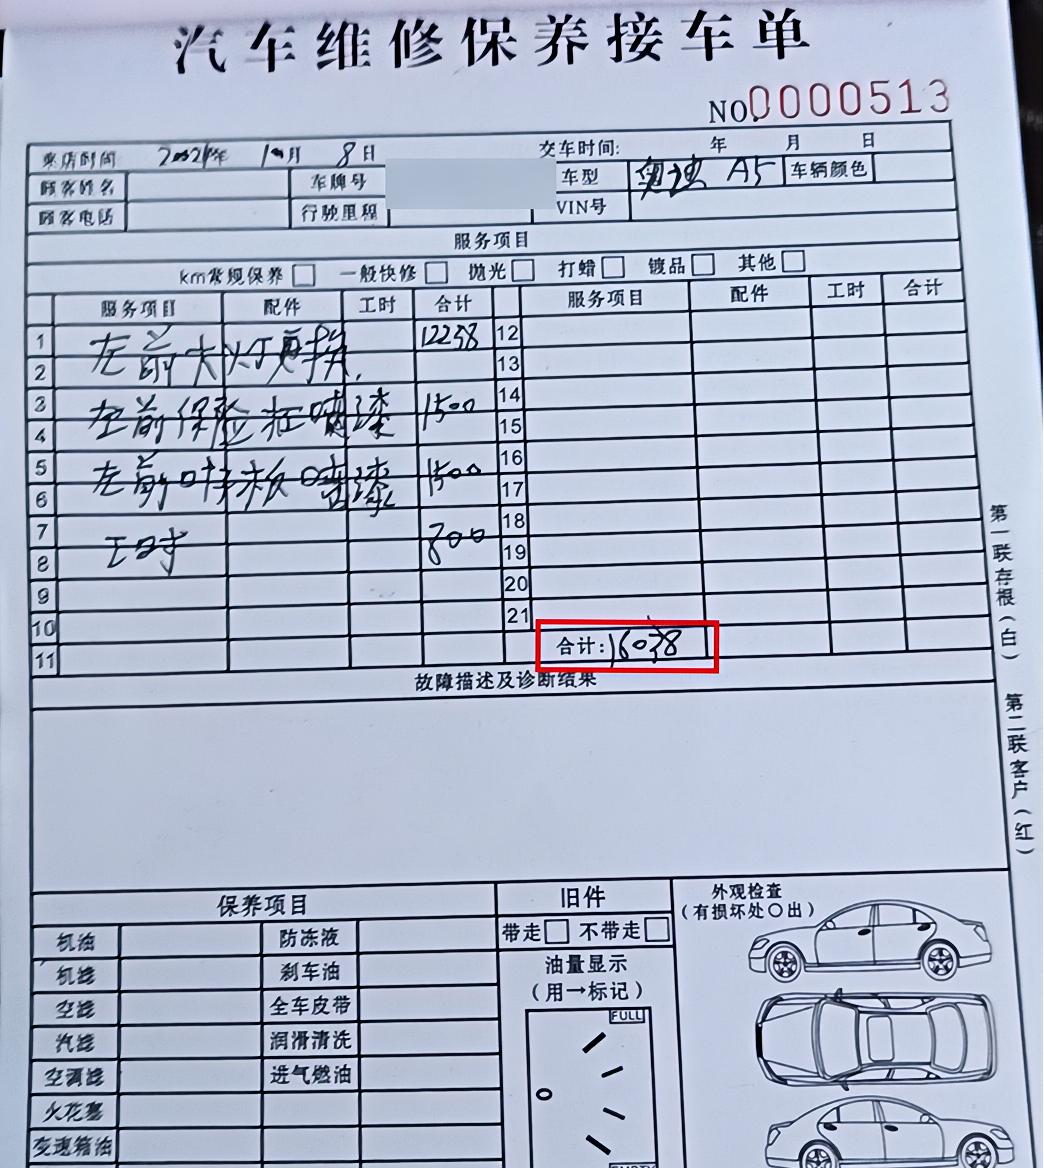 汽车维修保养接车单
NO.0000513
来店时间 2024年 10月 8日 交车时间: 年 月 日
顾客姓名 车牌号 车型 奥迪 A5 车辆颜色
顾客电话 行驶里程 VIN号
服务项目
km常规保养 一般快修 抛光 打蜡 镀品 其他
服务项目 配件 工时 合计 服务项目 配件 工时 合计
1 左前大灯更换. 12238 12
2 13
3 左前保险杠喷漆 1500 14
4 15
5 左前叶子板喷漆 1500 16
6 17
7 工时 800 18
8 19
9 20
10 21
11 合计: 16038
故障描述及诊断结果
第一联存根(白)
第二联客户(红)
保养项目 旧件 外观检查
(有损坏处〇出)
机油 防冻液 带走 不带走
机滤 刹车油 油量显示
空滤 全车皮带 (用→标记)
汽滤 润滑清洗 FULL
空调滤 进气燃油
火花塞
变速箱油
EMPTY